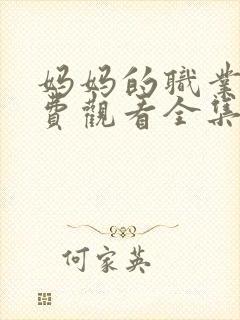 妈妈的職業
費觀看全集
何家英